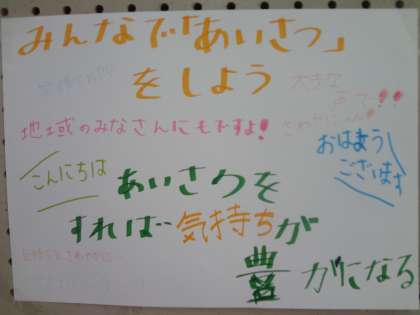 みんなで「あいさつ」
をしよう
大きな
声で!!
さわやかに!!
地域のみなさんにもですよ!
おはよう
ございます
こんにちは
あいさつを
すれば…気持ちが
豊かになる